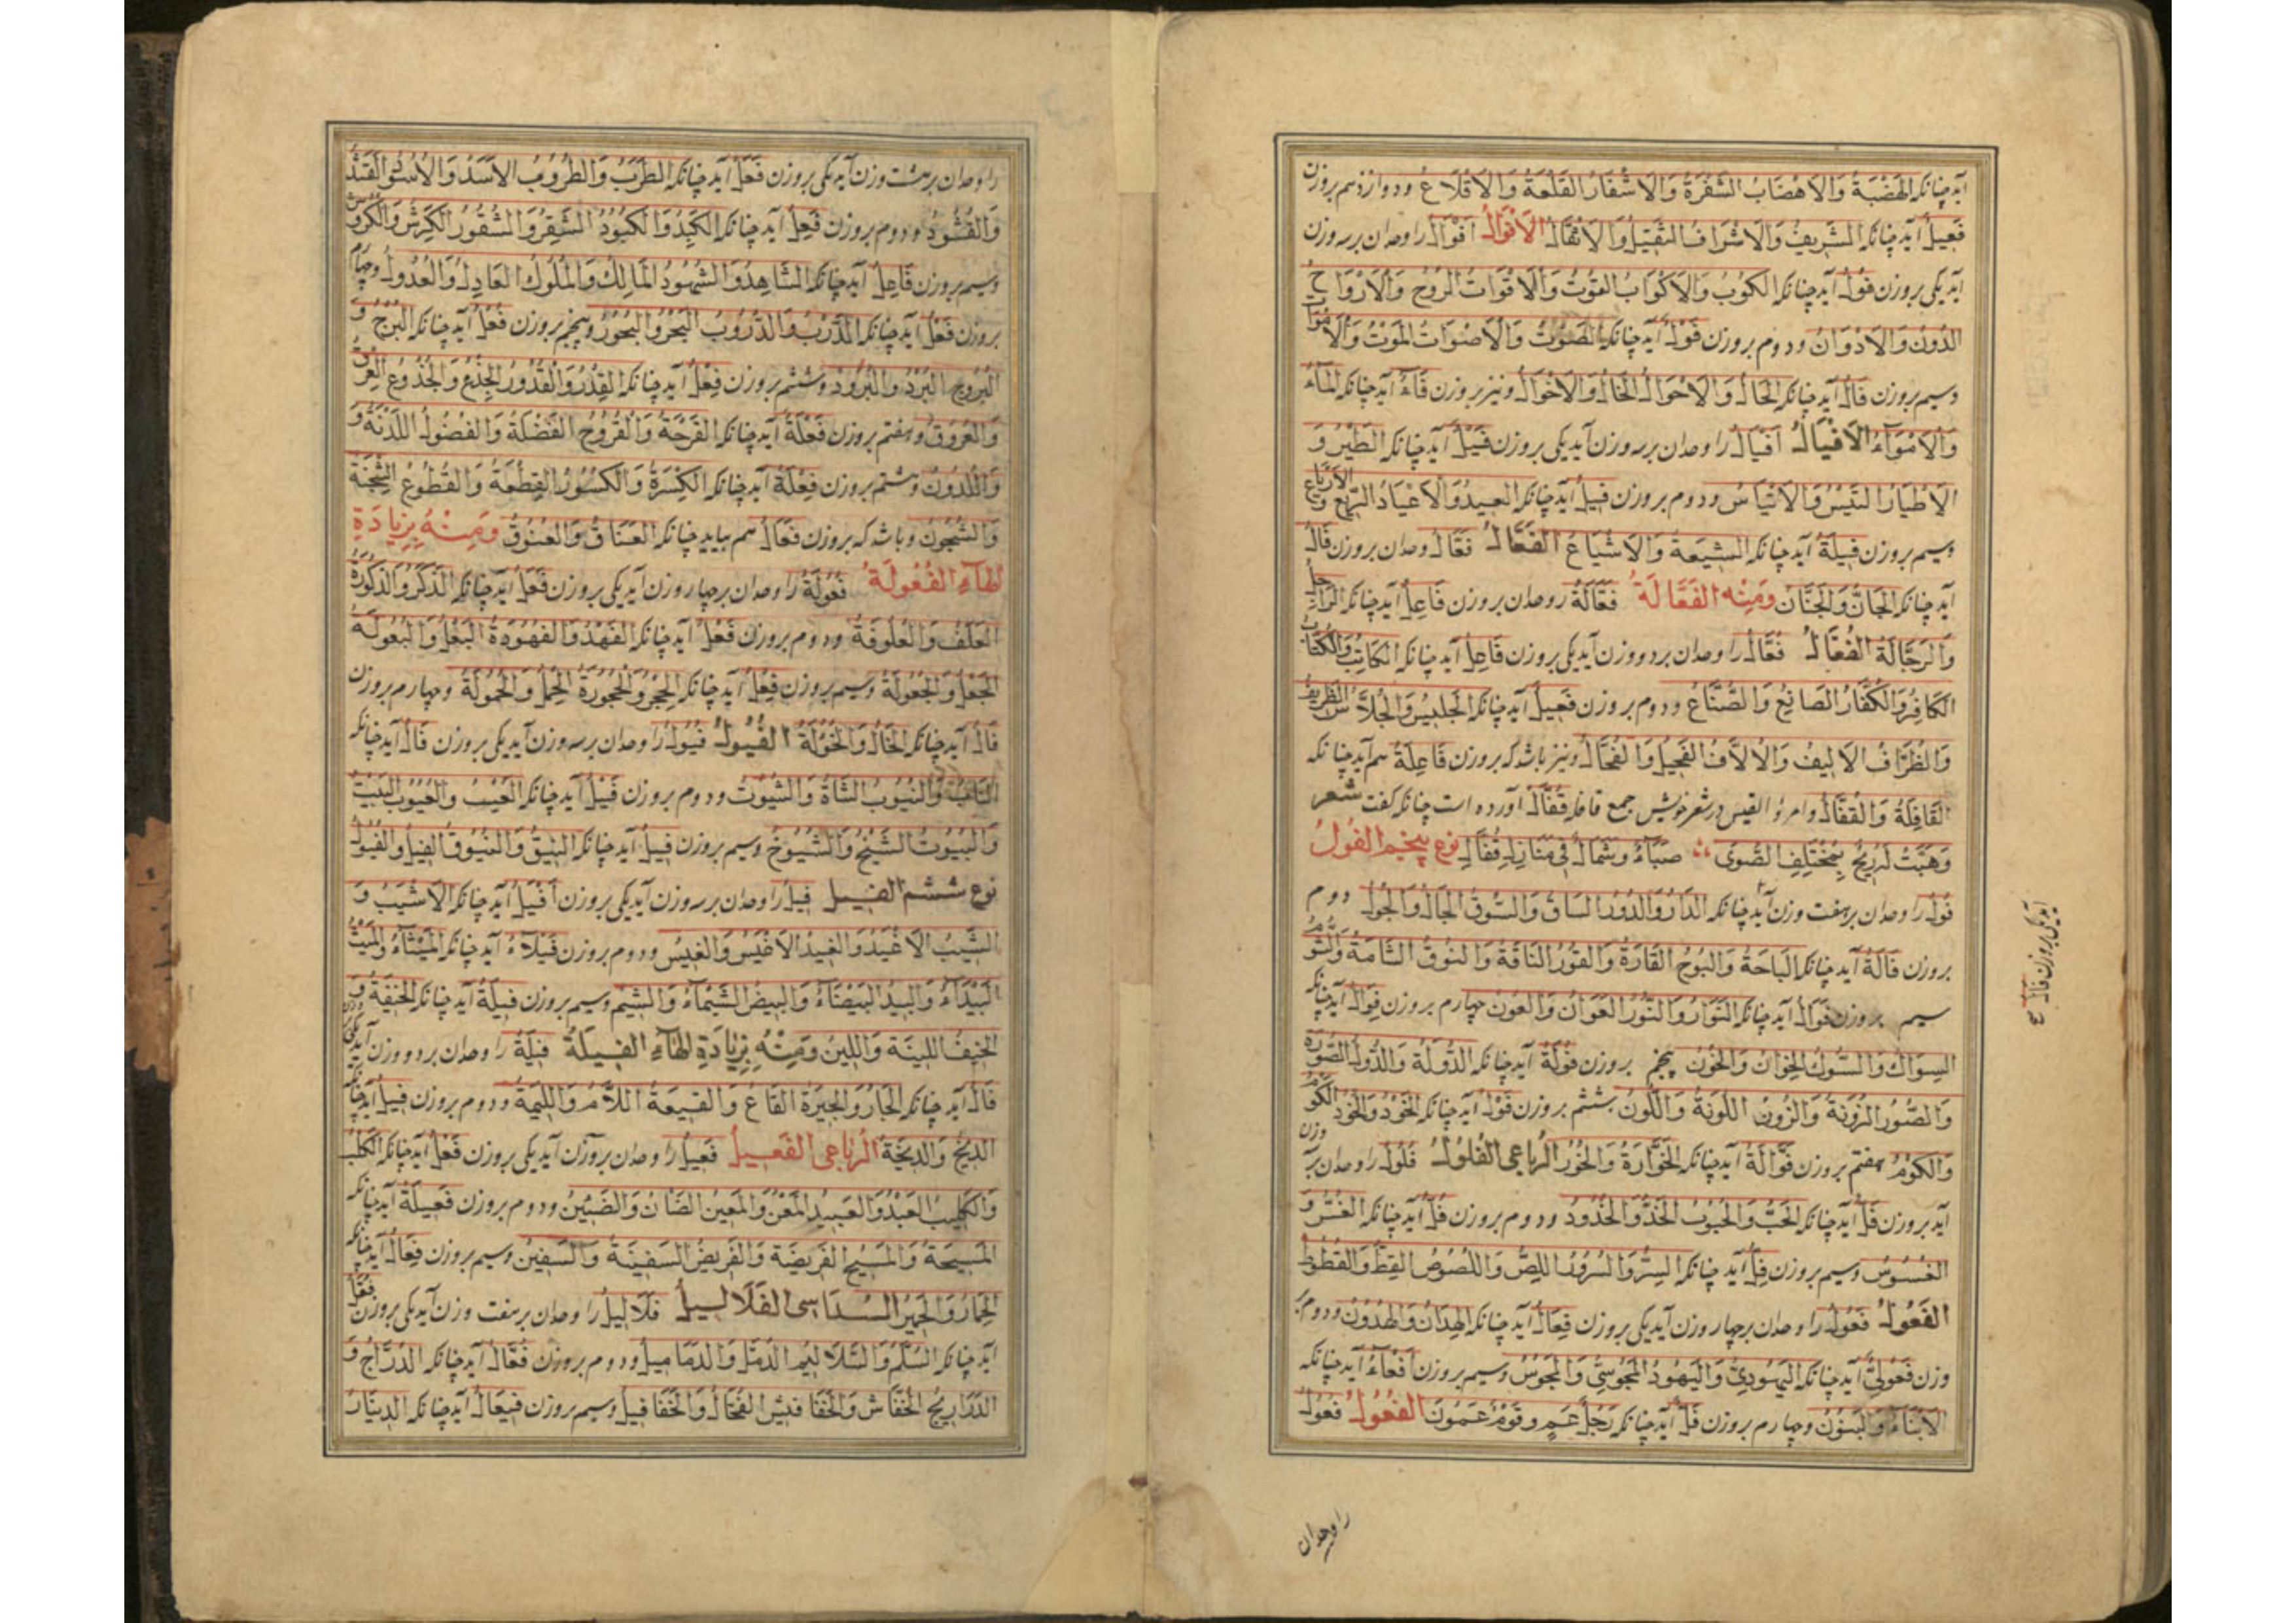 آید چنانکه الهَضْبَةُ وَالاَهْضَابُ الشَفْرَةُ وَالاَشْفَارُ القَلْعَةُ وَالاَقْلَاعُ ودوازدهم بروزن
فَعِیلٌ آید چنانکه الشَرِیفُ وَالاَشْرَافُ الثَقِیلُ وَالاَثْقَالُ الاَفْوَالُ اَفْوَالٌ را وحدان برسه وزن
آید یکی بروزن فُولٌ آید چنانکه الکُوبُ وَالاَکْوَابُ القُوتُ وَالاَقْوَاتُ الرُوحُ وَالاَرْوَاحُ
الدُونُ وَالاَدْوَانُ ودوم بروزن فَوْلٌ آید چنانکه الصَوْتُ وَالاَصْوَاتُ المَوْتُ وَالاَمْوَاتُ
وسیم بروزن فَالٌ آید چنانکه الحَالُ وَالاَحْوَالُ الخَالُ وَالاَخْوَالُ ونیز بروزن فَاءٌ آید چنانکه المَاءُ
وَالاَمْوَآءُ الاَفْیَالُ اَفْیَالٌ را وحدان برسه وزن آید یکی بروزن فَیْلٌ آید چنانکه الطَیْرُ وَ
الاَطْیَارُ التَیْسُ وَالاَتْیَاسُ ودوم بروزن فِیلٌ آید چنانکه العِیدُ وَالاَعْیَادُ الرِیعُ وَ الاَرْیَاعُ
وسیم بروزن فِیلَةٌ آید چنانکه الشِیعَةُ وَالاَشْیَاعُ الفَعَّالُ فَعَّالٌ وحدان بروزن فَالٌ
آید چنانکه الجَانُّ وَالجَنَّانُ وَمِنْهُ الفَعَّالَةُ فَعَّالَةٌ را وحدان بروزن فَاعِلٌ آید چنانکه الرَاجِلُ
وَالرَجَّالَةُ الفُعَّالُ فُعَّالٌ را وحدان بردو وزن آید یکی بروزن فَاعِلٌ آید چنانکه الکَاتِبُ وَالکُتَّابُ
الکَافِرُ وَالکُفَّارُ الصَانِعُ وَالصُنَّاعُ ودوم بروزن فَعِیلٌ آید چنانکه الجَلِیسُ وَالجُلَّاسُ الظَرِیفُ
وَالظُرَّافُ الاَلِیفُ وَالاُلَّافُ الفَحِیلُ وَالفُحَّالُ ونیز باشد که بروزن فَاعِلَةٌ هم آید چنانکه
القَافِلَةُ وَالقُفَّالُ وامرؤ القیس در شعر خویش جمع قافله قُفَّالٌ آورده است چنانکه کفت شعر
وَهَبَّتْ لَهُ رِیحٌ بِمُخْتَلِفِ الصُوَی صَبَاءٌ وَشَمَالٌ فِی مَنَازِلِ قُفَّالِ نوع پنجم الفُولُ
فُولٌ را وحدان برهفت وزن آید چنانکه الدَارُ وَالدُورُ السَاقُ وَالسُوقُ الجَالُ وَالجُولُ دوم
بروزن فَالَةٌ آید چنانکه البَاحَةُ وَالبُوحُ القَارَةُ وَالقُورُ النَاقَةُ وَالنُوقُ الشَامَةُ وَالشُومُ
سیم بروزن فَوَالٌ آید چنانکه النَوَارُ وَالنُورُ العَوَانُ وَالعُونُ چهارم بروزن فِوَالٌ آید چنانکه
السِوَاكُ وَالسُوكُ الخِوَانُ وَالخُونُ پنجم بروزن فُولَةٌ آید چنانکه الدُولَةُ وَالدُوَلُ الصُورَةُ
وَالصُوَرُ الزُونَةُ وَالزُونُ اللُونَةُ وَاللُونُ ششم بروزن فَوْلٌ آید چنانکه الخَوْدُ وَالخُودُ الکَوْمُ
وَالکُومُ هفتم بروزن فَوَّالَةٌ آید چنانکه الخَوَّارَةُ وَالخُورُ الرباعی الفُلُولُ فُلُولٌ را وحدان برسه وزن
آید بروزن فَلٌّ آید چنانکه الحَبُّ وَالحُبُوبُ الخَدُّ وَالخُدُودُ ودوم بروزن فُلٌّ آید چنانکه الغُسُّ وَ
الغُسُوسُ وسیم بروزن فِلٌّ آید چنانکه السِرُّ وَالسُرُورُ اللِصُّ وَاللُصُوصُ القِطُّ وَالقُطُوطُ
الفَعُولُ فَعُولٌ را وحدان برچهار وزن آید یکی بروزن فِعَالٌ آید چنانکه الهِدَانُ وَالهَدُونُ ودوم بر
وزن فَعُولِیٌّ آید چنانکه الیَهُودِیُّ وَالیَهُودُ المَجُوسِیُّ وَالمَجُوسُ وسیم بروزن اَفْعَاءٌ آید چنانکه
الاَبْنَاءُ وَالبَنُونُ وچهارم بروزن فَلٌ آید چنانکه رَجُلٌ عَمٍ وَقَوْمٌ عَمُونَ الفُعُولُ فُعُولٌ
آید یکی بروزن فَالٌ صح
را وحدان
را وحدان برهشت وزن آید یکی بروزن فَعَلٌ آید چنانکه الطَرَبُ وَالطُرُوبُ الاَسَدُ وَالاُسُودُ القَتَدُ
وَالقُتُودُ ودوم بروزن فَعِلٌ آید چنانکه الکَبِدُ وَالکُبُودُ الشَقِرُ وَالشُقُورُ الکَرِشُ وَالکُرُوشُ
وسیم بروزن فَاعِلٌ آید چنانکه الشَاهِدُ وَالشُهُودُ المَالِكُ وَالمُلُوكُ العَادِلُ وَالعُدُولُ وچهارم
بروزن فَعْلٌ آید چنانکه الدَرْبُ وَالدُرُوبُ البَحْرُ وَالبُحُورُ وپنجم بروزن فُعْلٌ آید چنانکه البُرْجُ وَ
البُرُوجُ البُرْدُ وَالبُرُودُ وششم بروزن فِعْلٌ آید چنانکه القِدْرُ وَالقُدُورُ الجِذْعُ وَالجُذُوعُ العِرْقُ
وَالعُرُوقُ وهفتم بروزن فَعْلَةٌ آید چنانکه القَرْحَةُ وَالقُرُوحُ الفَضْلَةُ وَالفُضُولُ اللَدْنَةُ وَ
وَاللُدُونُ وهشتم بروزن فِعْلَةٌ آید چنانکه الکِسْرَةُ وَالکُسُورُ القِطْعَةُ وَالقُطُوعُ الشِجْنَةُ
وَالشُجُونُ وباشد که بروزن فَعَالٌ هم بیاید چنانکه العَنَاقُ وَالعُنُوقُ وَمِنْهُ بِزِیَادَةِ
الهَاءِ الفُعُولَةُ فُعُولَةٌ را وحدان برچهار وزن آید یکی بروزن فَعَلٌ آید چنانکه الذَکَرُ وَالذُکُورَةُ
العَلَفُ وَالعُلُوفَةُ ودوم بروزن فَعْلٌ آید چنانکه الفَهْدُ وَالفُهُودَةُ البَعْلُ وَالبُعُولَةُ
الجَعْلُ وَالجُعُولَةُ وسیم بروزن فِعْلٌ آید چنانکه الحِجْرُ وَالحُجُورَةُ الحِمْلُ وَالحُمُولَةُ وچهارم بروزن
فَالٌ آید چنانکه الخَالُ وَالخُؤُلَةُ الفُیُولُ فُیُولٌ را وحدان برسه وزن آید یکی بروزن فَالٌ آید چنانکه
النَابُ وَالنُیُوبُ الشَاةُ وَالشُیُوتُ ودوم بروزن فَیْلٌ آید چنانکه العَیْبُ وَالعُیُوبُ البَیْتُ
وَالبُیُوتُ الشَیْخُ وَالشُیُوخُ وسیم بروزن فِیلٌ آید چنانکه النِیقُ وَالنُیُوقُ الفِیلُ وَالفُیُولُ
نوع ششم الفِیلُ فِیلٌ را وحدان برسه وزن آید یکی بروزن اَفْیَلُ آید چنانکه الاَشْیَبُ وَ
الشِیبُ الاَغْیَدُ وَالغِیدُ الاَغْیَسُ وَالغِیسُ ودوم بروزن فَیْلَآءُ آید چنانکه المَیْثَآءُ وَالمِیثُ
البَیْدَآءُ وَالبِیدُ البَیْضَآءُ وَالبِیضُ الشَیْمَآءُ وَالشِیمُ وسیم بروزن فِیلَةٌ آید چنانکه الخِیفَةُ وَ
الخِیفُ اللِینَةُ وَاللِینُ وَمِنْهُ بِزِیَادَةِ الهَاءِ الفِیلَةُ فِیلَةٌ را وحدان بردو وزن آید یکی بروزن
فَالٌ آید چنانکه الجَارُ وَالجِیرَةُ القَاعُ وَالقِیعَةُ اللَّامُ وَاللِیمَةُ ودوم بروزن فِیلٌ آید چنانکه
الدِیخُ وَالدِیَخَةُ الرباعی الفَعِیلُ فَعِیلٌ را وحدان برسه وزن آید یکی بروزن فَعْلٌ آید چنانکه الکَلْبُ
وَالکَلِیبُ العَبْدُ وَالعَبِیدُ المَعْنُ وَالمَعِینُ الضَانُ وَالضَئِینُ ودوم بروزن فَعِیلَةٌ آید چنانکه
المَسِیحَةُ وَالمَسِیحُ الفَرِیضَةُ وَالفَرِیضُ السَفِینَةُ وَالسَفِینُ وسیم بروزن فِعَالٌ آید چنانکه
الحِمَارُ وَالحَمِیرُ السُدَاسی الفَلَالِیلُ فَلَالِیلُ را وحدان برهفت وزن آید یکی بروزن فُعَّلٌ
آید چنانکه السُلَّمُ وَالسَلَالِیمُ الدُمَّلُ وَالدَمَامِیلُ ودوم بروزن فُعَّالٌ آید چنانکه الدُرَّاجُ وَ
الدَرَارِیجُ الخُفَّاشُ وَالخَفَافِیشُ الفُحَّالُ وَالخَفَافِیلُ وسیم بروزن فِیعَالٌ آید چنانکه الدِینَارُ